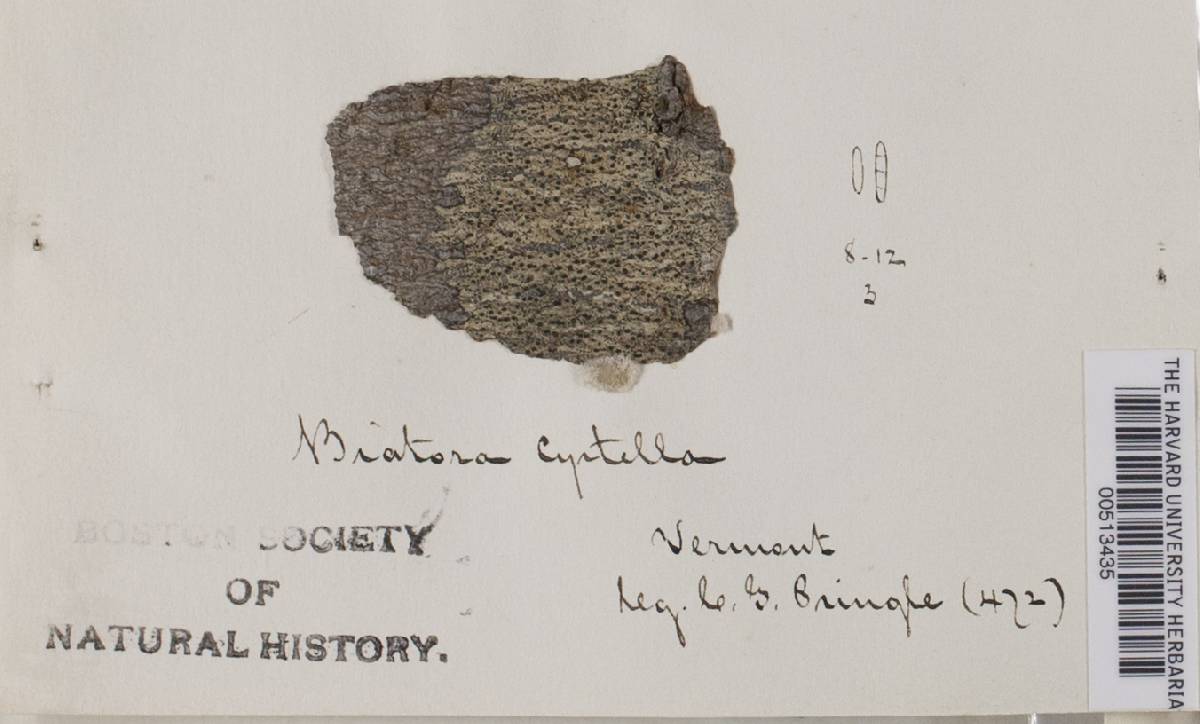 8-12
3
Biatora cyrtella
Vermont
leg. C. G. Pringle (472)
BOSTON SOCIETY
OF
NATURAL HISTORY.
THE HARVARD UNIVERSITY HERBARIA
00513435